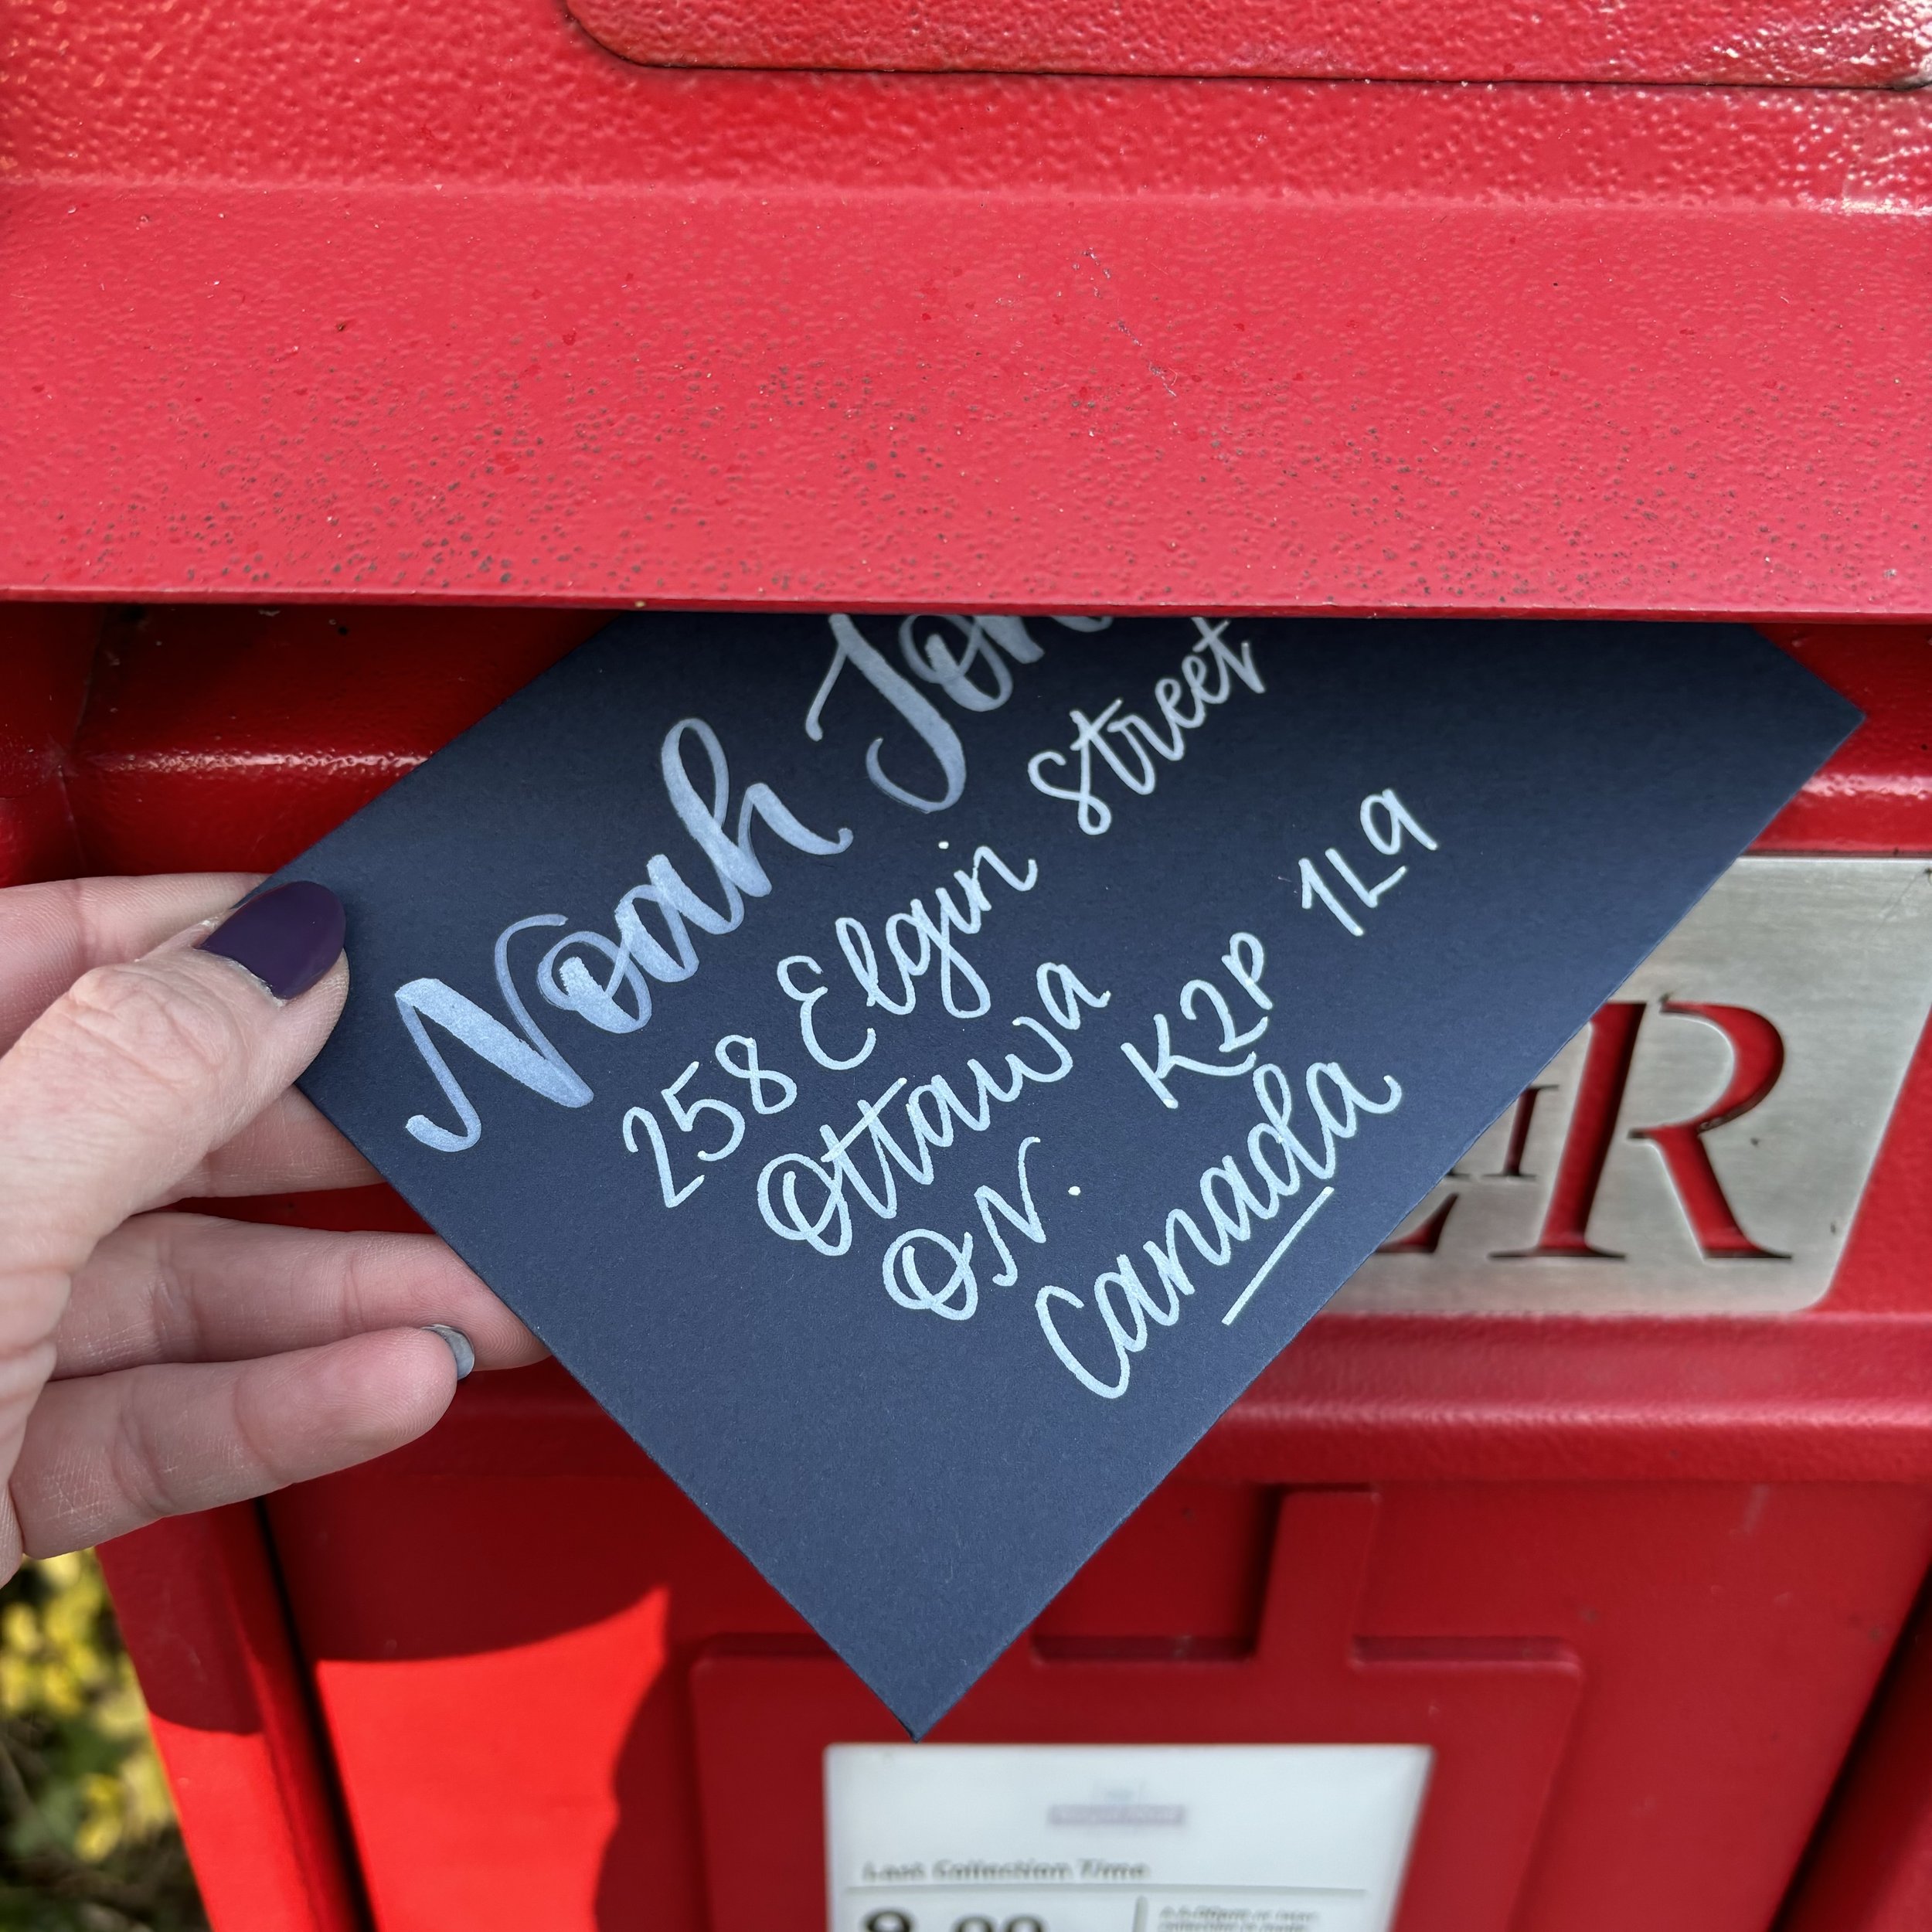 Noah
258 Elgin Street
Ottawa
ON. K2P 1L9
Canada
EIIR
Last Collection Time